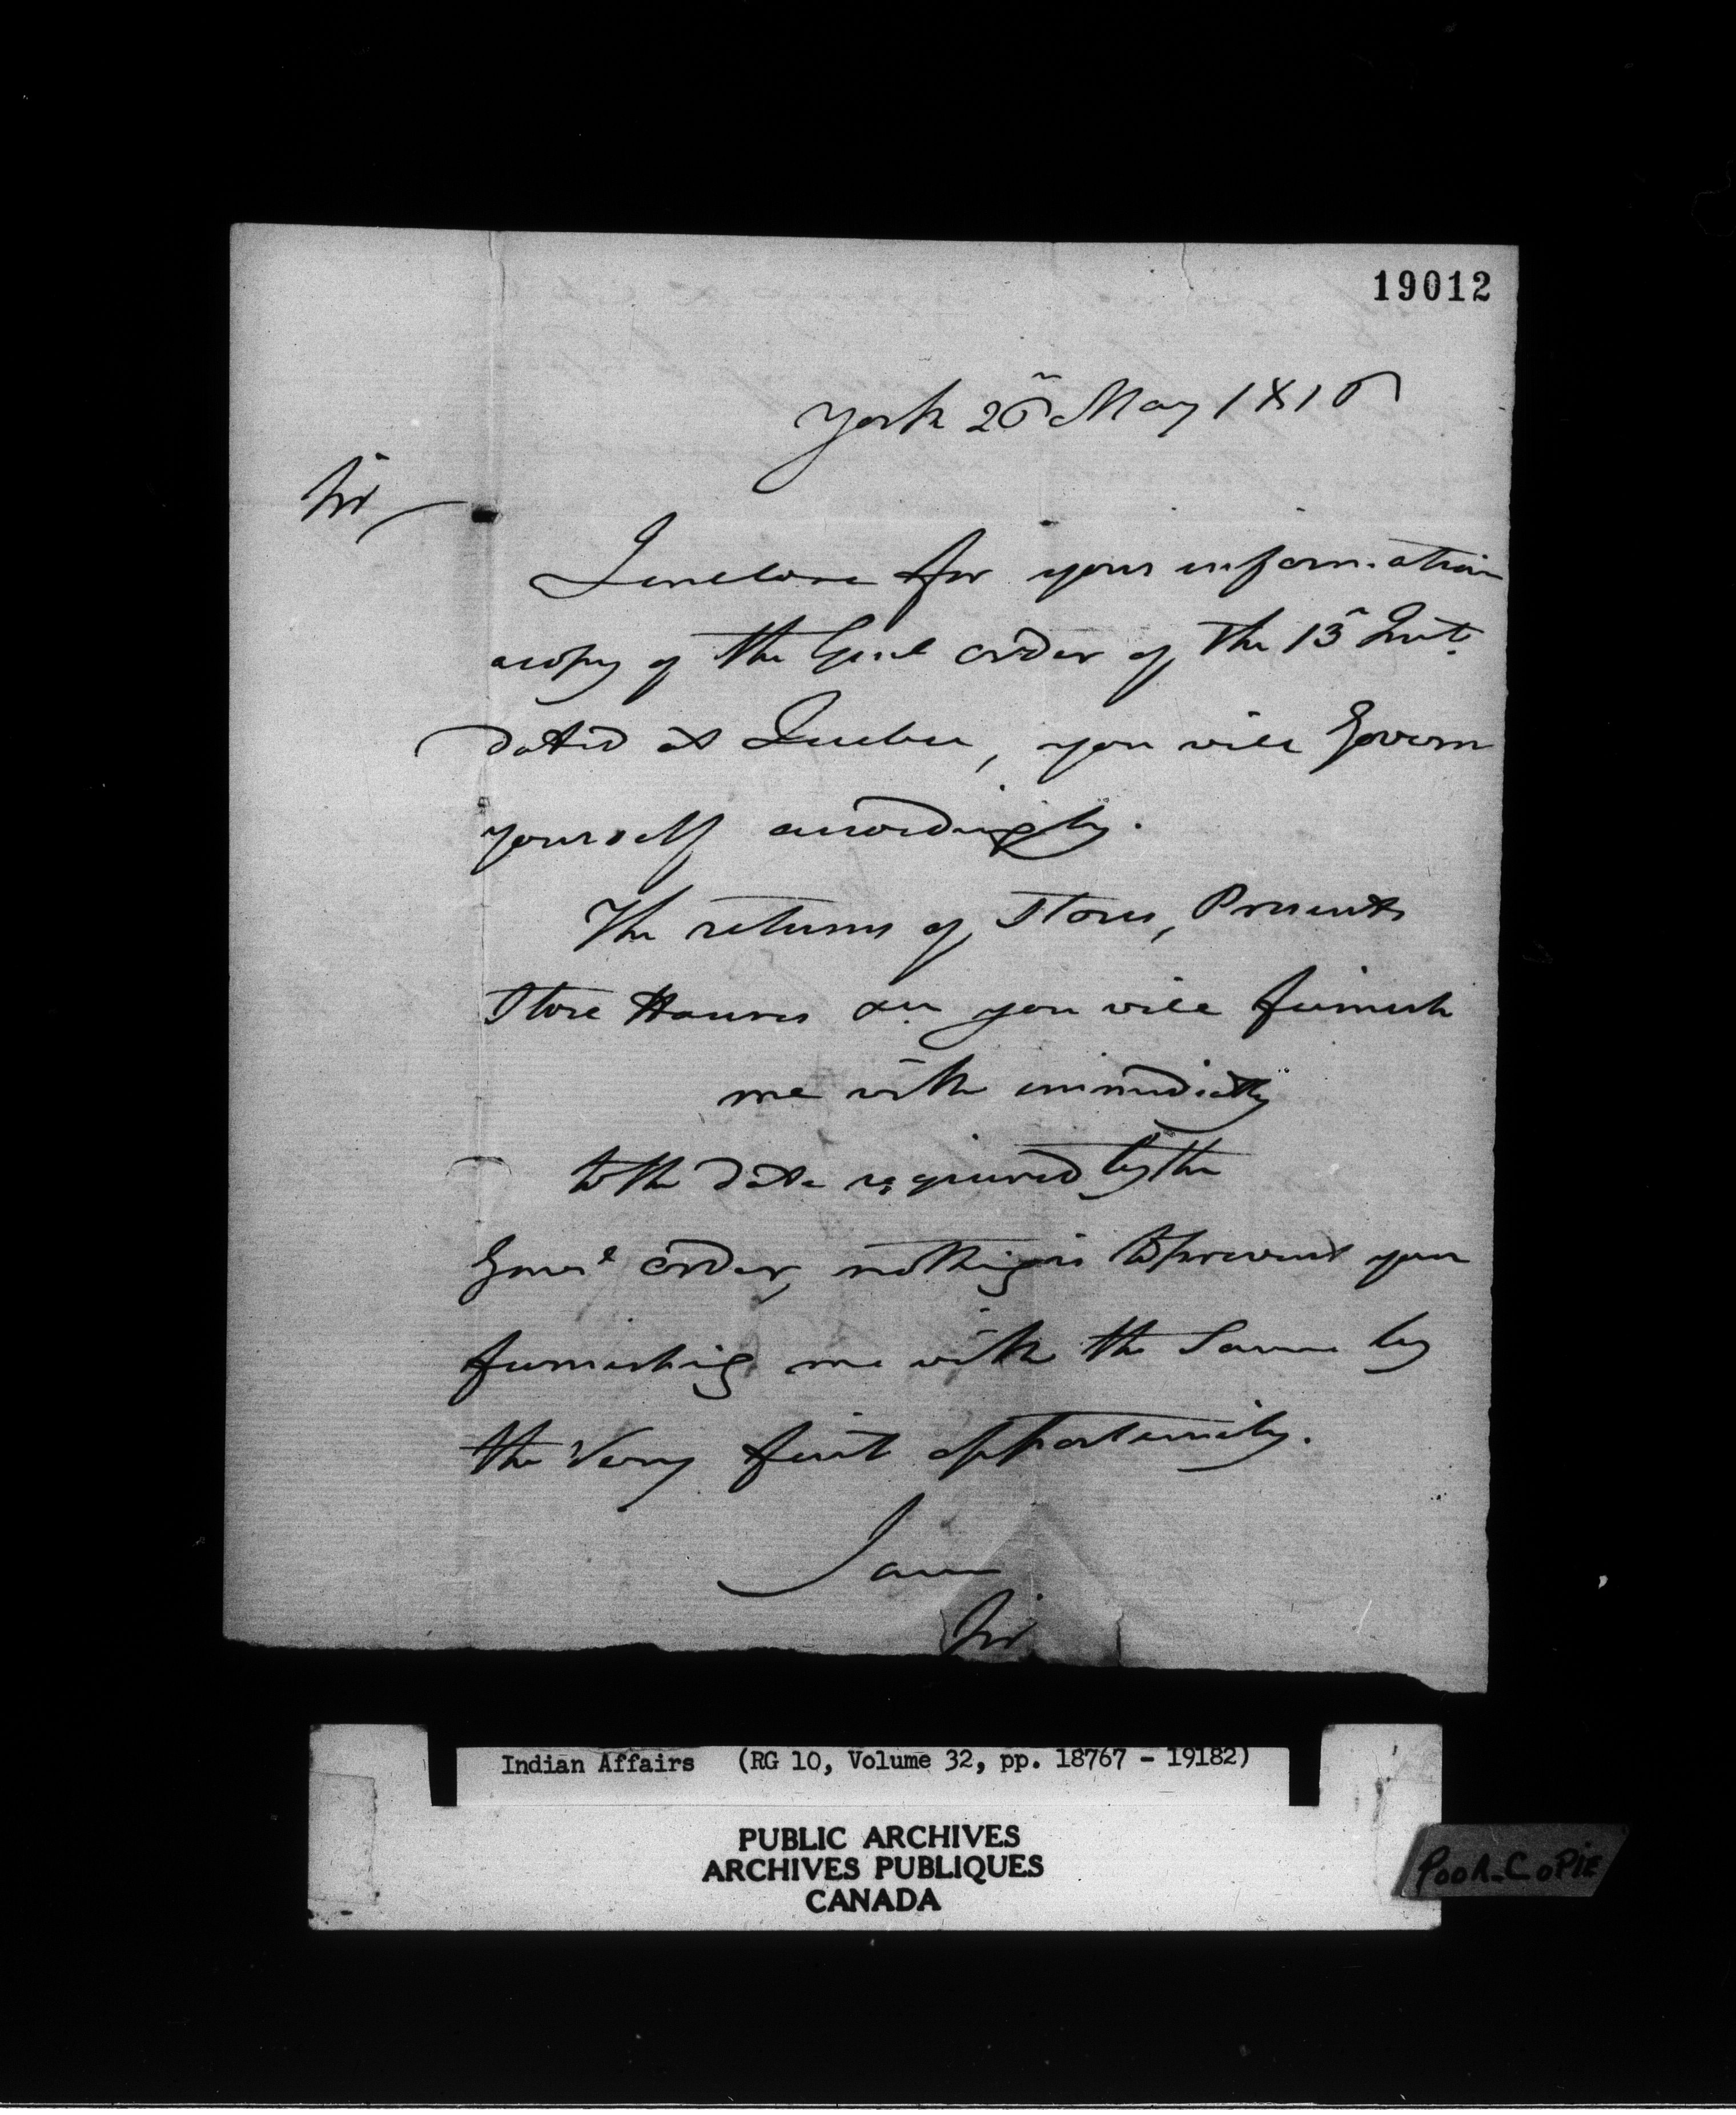 19012
York 26 May 1816
Sir
I enclose for your information
a copy of the Genl order of the 13 Inst.
dated at Quebec, you will Govern
yourself accordingly.
The returns of Stores, Presents
Store Houses &c. you will furnish
me with immediatly
to the date required by the
Genel order, nothing is to prevent your
furnishing me with the Same by
the Very first opportunity.
I am
Sir
Indian Affairs (RG 10, Volume 32, pp. 18767 - 19182)
PUBLIC ARCHIVES
ARCHIVES PUBLIQUES
CANADA
POOR-COPIE